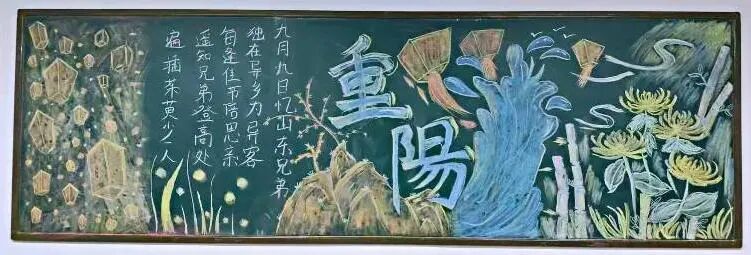 重陽
九月九日忆山东兄弟
独在异乡为异客
每逢佳节倍思亲
遥知兄弟登高处
遍插茱萸少一人